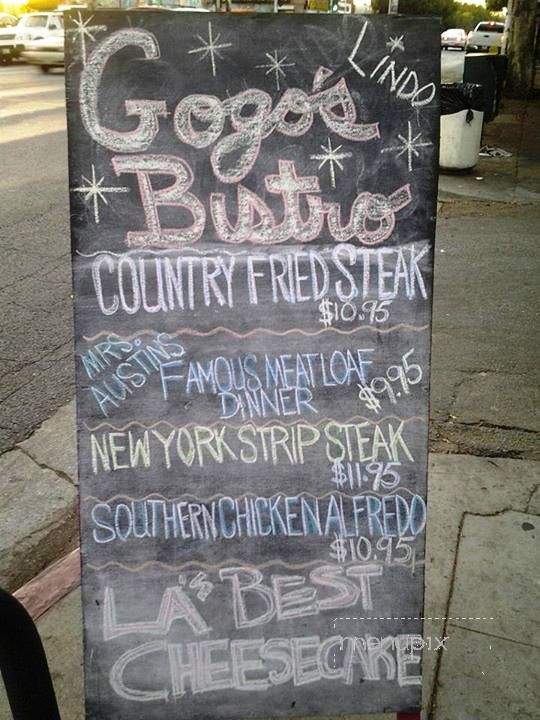 LINDO
Gogo's
Bistro
COUNTRY FRIED STEAK
$10.95
MRS.
AUSTINS
FAMOUS MEATLOAF
DINNER
$9.95
NEW YORK STRIP STEAK
$11.95
SOUTHERN CHICKEN ALFREDO
$10.95
LA's BEST
CHEESECAKE
menupix